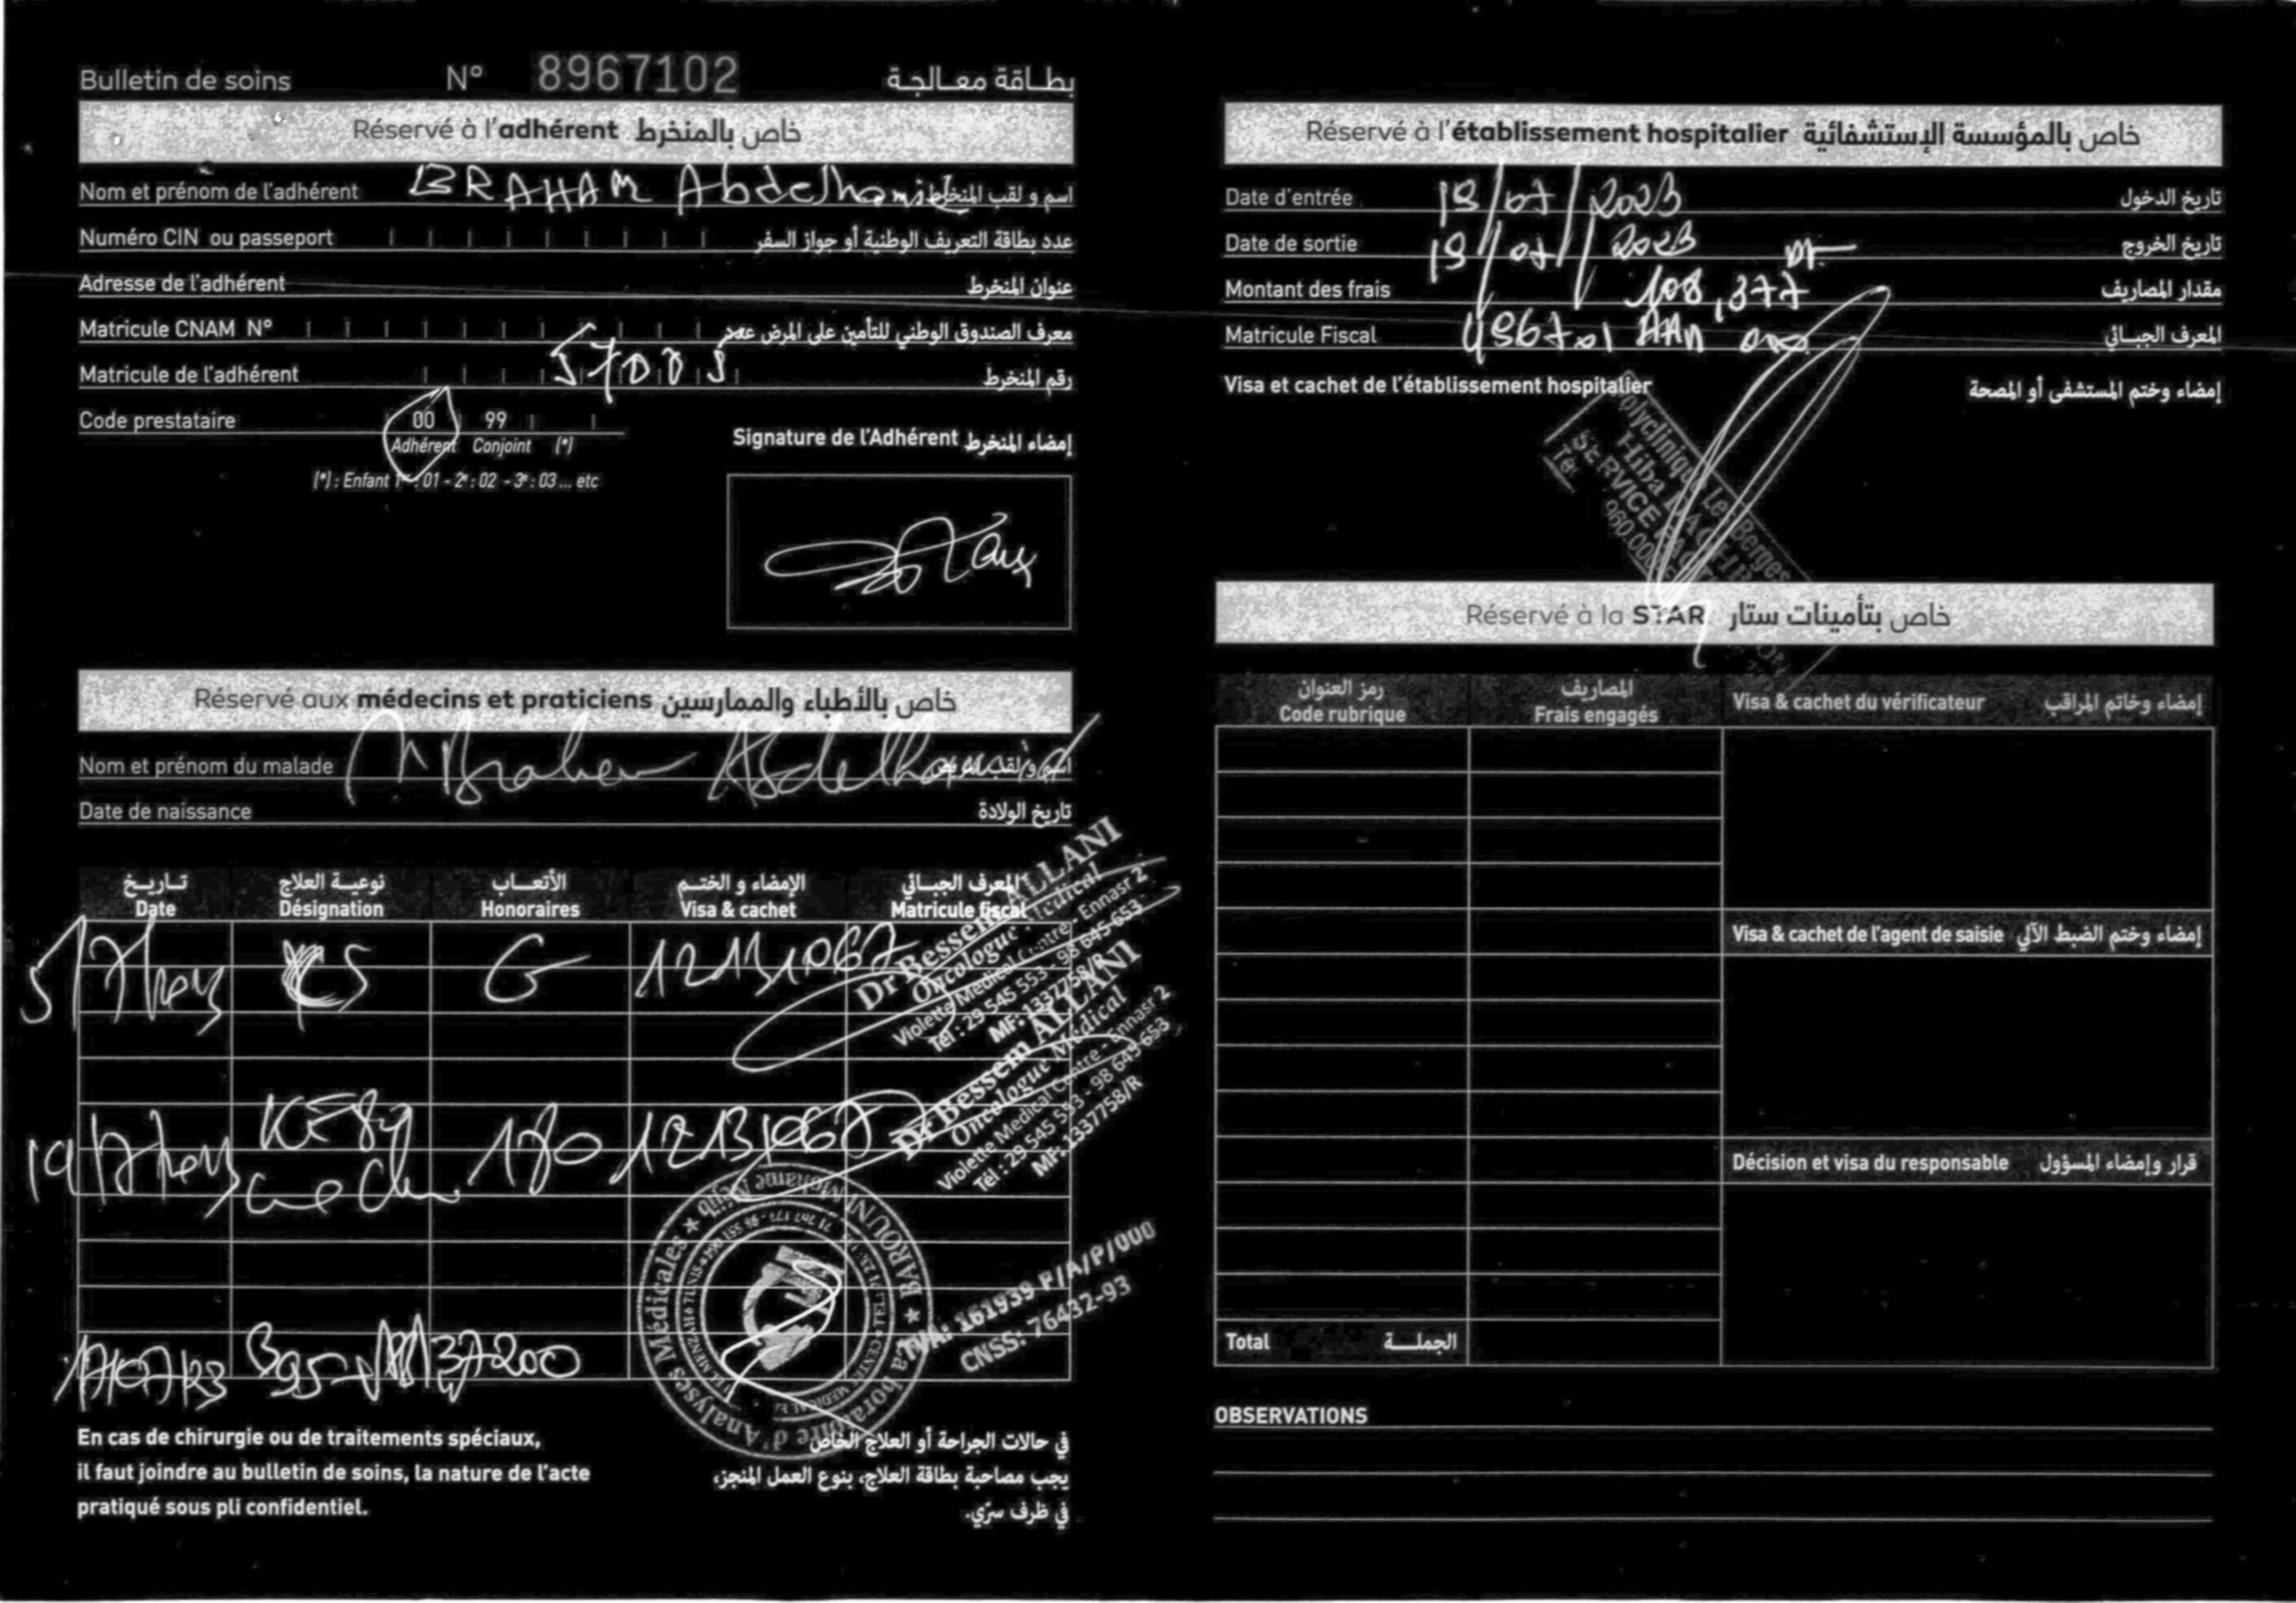 Bulletin de soins N° 8967102 بطاقة معالجة
Réservé à l'adhérent خاص بالمنخرط
Nom et prénom de l'adhérent BRAHAM Abdelhamid اسم و لقب المنخرط
Numéro CIN ou passeport عدد بطاقة التعريف الوطنية أو جواز السفر
Adresse de l'adhérent عنوان المنخرط
Matricule CNAM N° معرف الصندوق الوطني للتأمين على المرض عدد
Matricule de l'adhérent رقم المنخرط
Code prestataire 00 99
Adhérent Conjoint (*)
(*) : Enfant 1er : 01 - 2e : 02 - 3e : 03 ... etc
Signature de l'Adhérent إمضاء المنخرط
Réservé aux médecins et praticiens خاص بالأطباء والممارسين
Nom et prénom du malade Braham Abdelhamid اسم و لقب المريض
Date de naissance تاريخ الولادة
تاريخ نوعية العلاج الأتعاب الإمضاء و الختم المعرف الجبائي
Date Désignation Honoraires Visa & cachet Matricule fiscal
Dr Bessem ALLANI
Oncologue Médical
Violette Medical Centre - Ennasr 2
Tél : 29 545 553 - 98 645 653
MF: 1337758/R
Dr Bessem ALLANI
Oncologue Médical
Violette Medical Centre - Ennasr 2
Tél : 29 545 553 - 98 645 653
MF: 1337758/R
180
Laboratoire d'Analyses Médicales
BAROUNI
TVA: 161939 P/A/P/000
CNSS: 76432-93
37200
En cas de chirurgie ou de traitements spéciaux,
il faut joindre au bulletin de soins, la nature de l'acte
pratiqué sous pli confidentiel.
في حالات الجراحة أو العلاج الخاص
يجب مصاحبة بطاقة العلاج، بنوع العمل المنجز،
في ظرف سرّي.
Réservé à l'établissement hospitalier خاص بالمؤسسة الإستشفائية
Date d'entrée 19/07/2023 تاريخ الدخول
Date de sortie 19/07/2023 تاريخ الخروج
Montant des frais 108,377 مقدار المصاريف
Matricule Fiscal المعرف الجبائي
Visa et cachet de l'établissement hospitalier إمضاء وختم المستشفى أو المصحة
Polyclinique Les Berges
Hiba
SERVICE
Réservé à la STAR خاص بتأمينات ستار
رمز العنوان المصاريف
Code rubrique Frais engagés Visa & cachet du vérificateur إمضاء وخاتم المراقب
Visa & cachet de l'agent de saisie إمضاء وختم الضبط الآلي
Décision et visa du responsable قرار وإمضاء المسؤول
Total الجملة
OBSERVATIONS